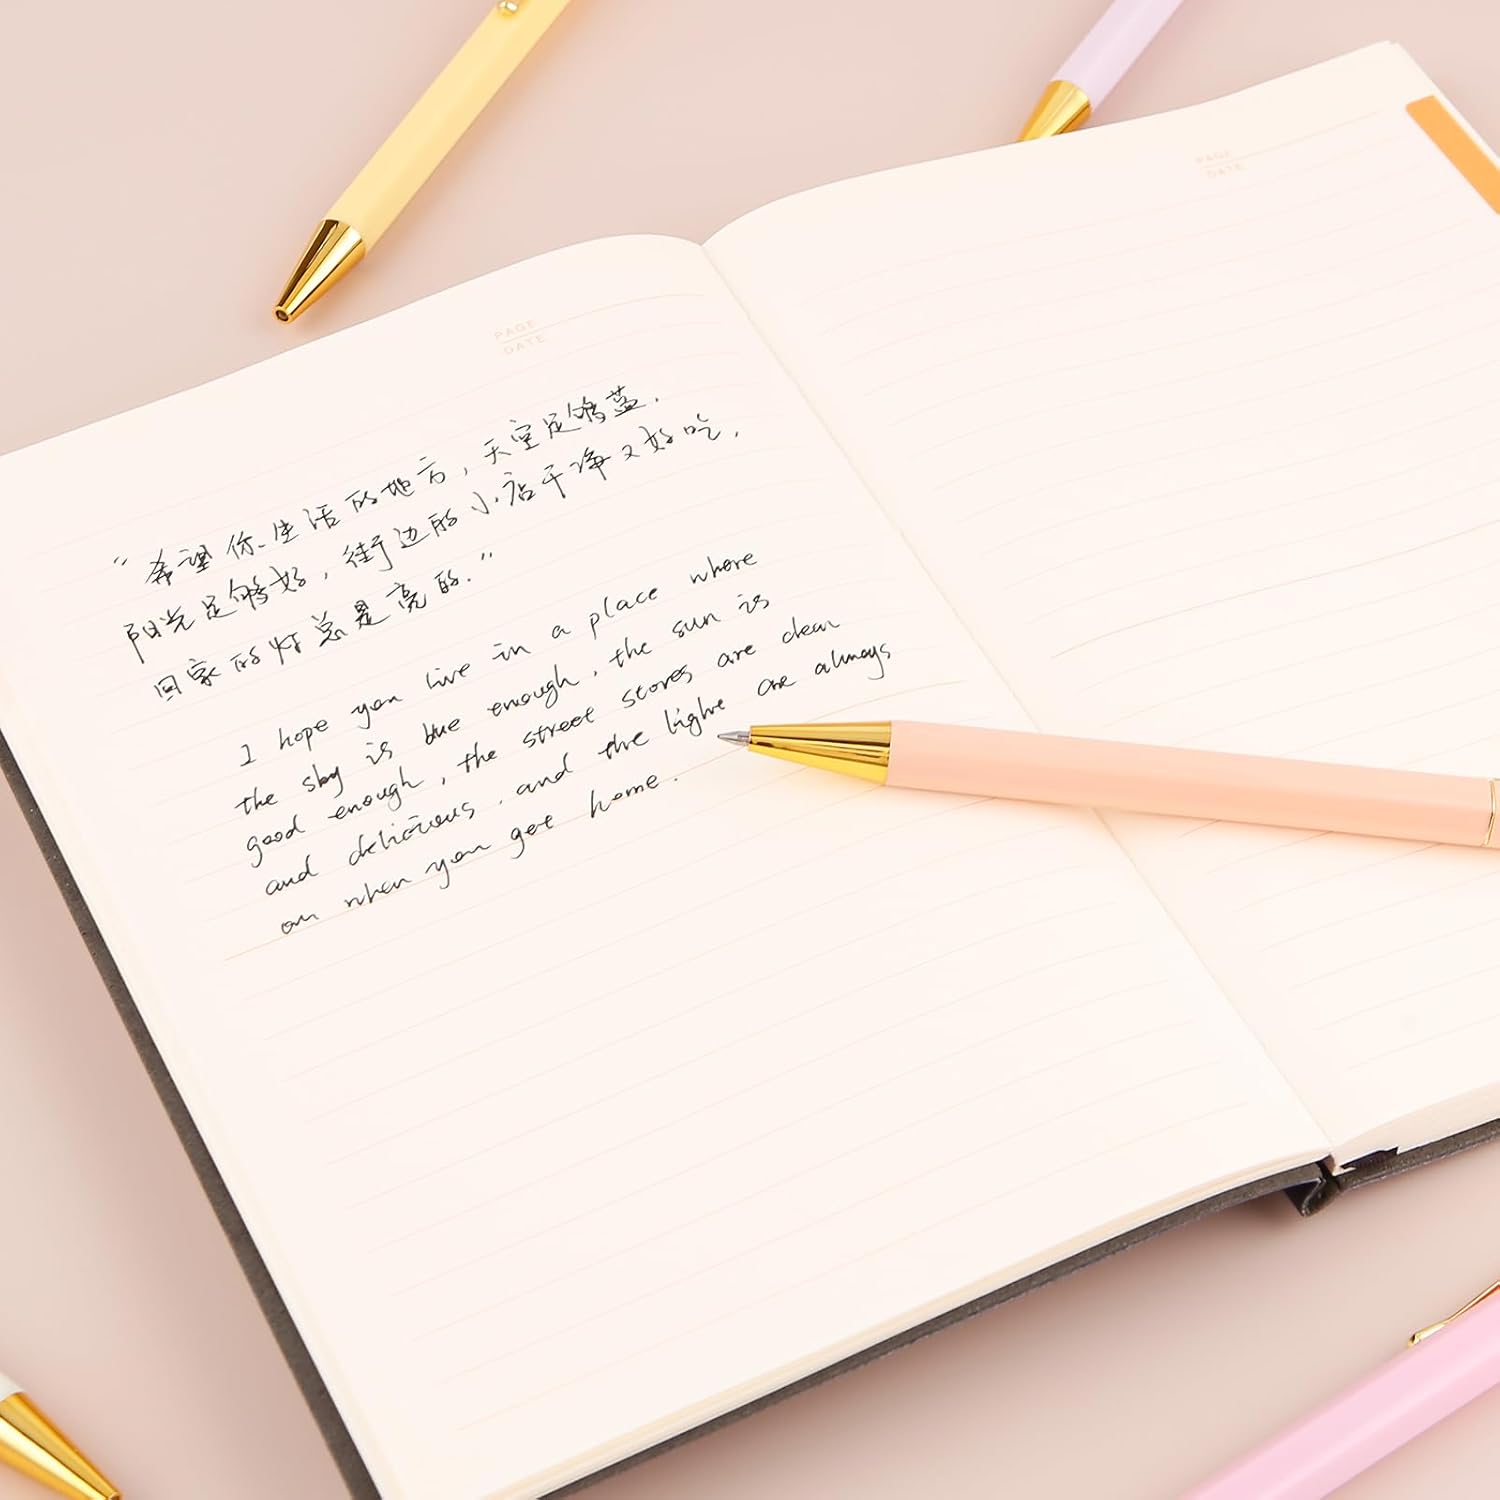 PAGE
DATE
"希望你生活的地方，天空足够蓝，
阳光足够好，街边的小店干净又好吃，
回家的灯总是亮的."
I hope you live in a place where
the sky is blue enough, the sun is
good enough, the street stores are clean
and delicious, and the light are always
on when you get home.
PAGE
DATE